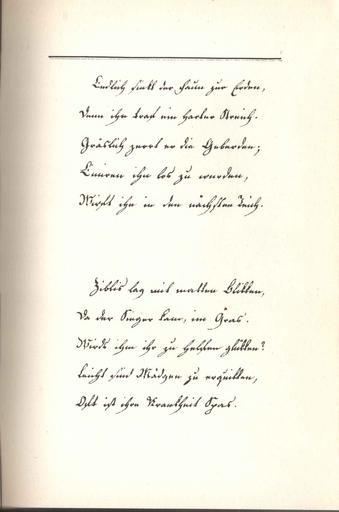 Endlich sinkt der Faun zur Erden,
Denn ihn traf ein harter Streich.
Grässlich zerrt er die Geberden;
Emiren ihn los zu werden,
Wirft ihn in den nächsten Teich.
Ziblis lag mit matten Blikken,
Da der Sieger kam, im Gras.
Wirds ihm ihr zu helfen glükken?
Leicht sind Mädgen zu erquikken,
Oft ist ihre Krankheit Spas.